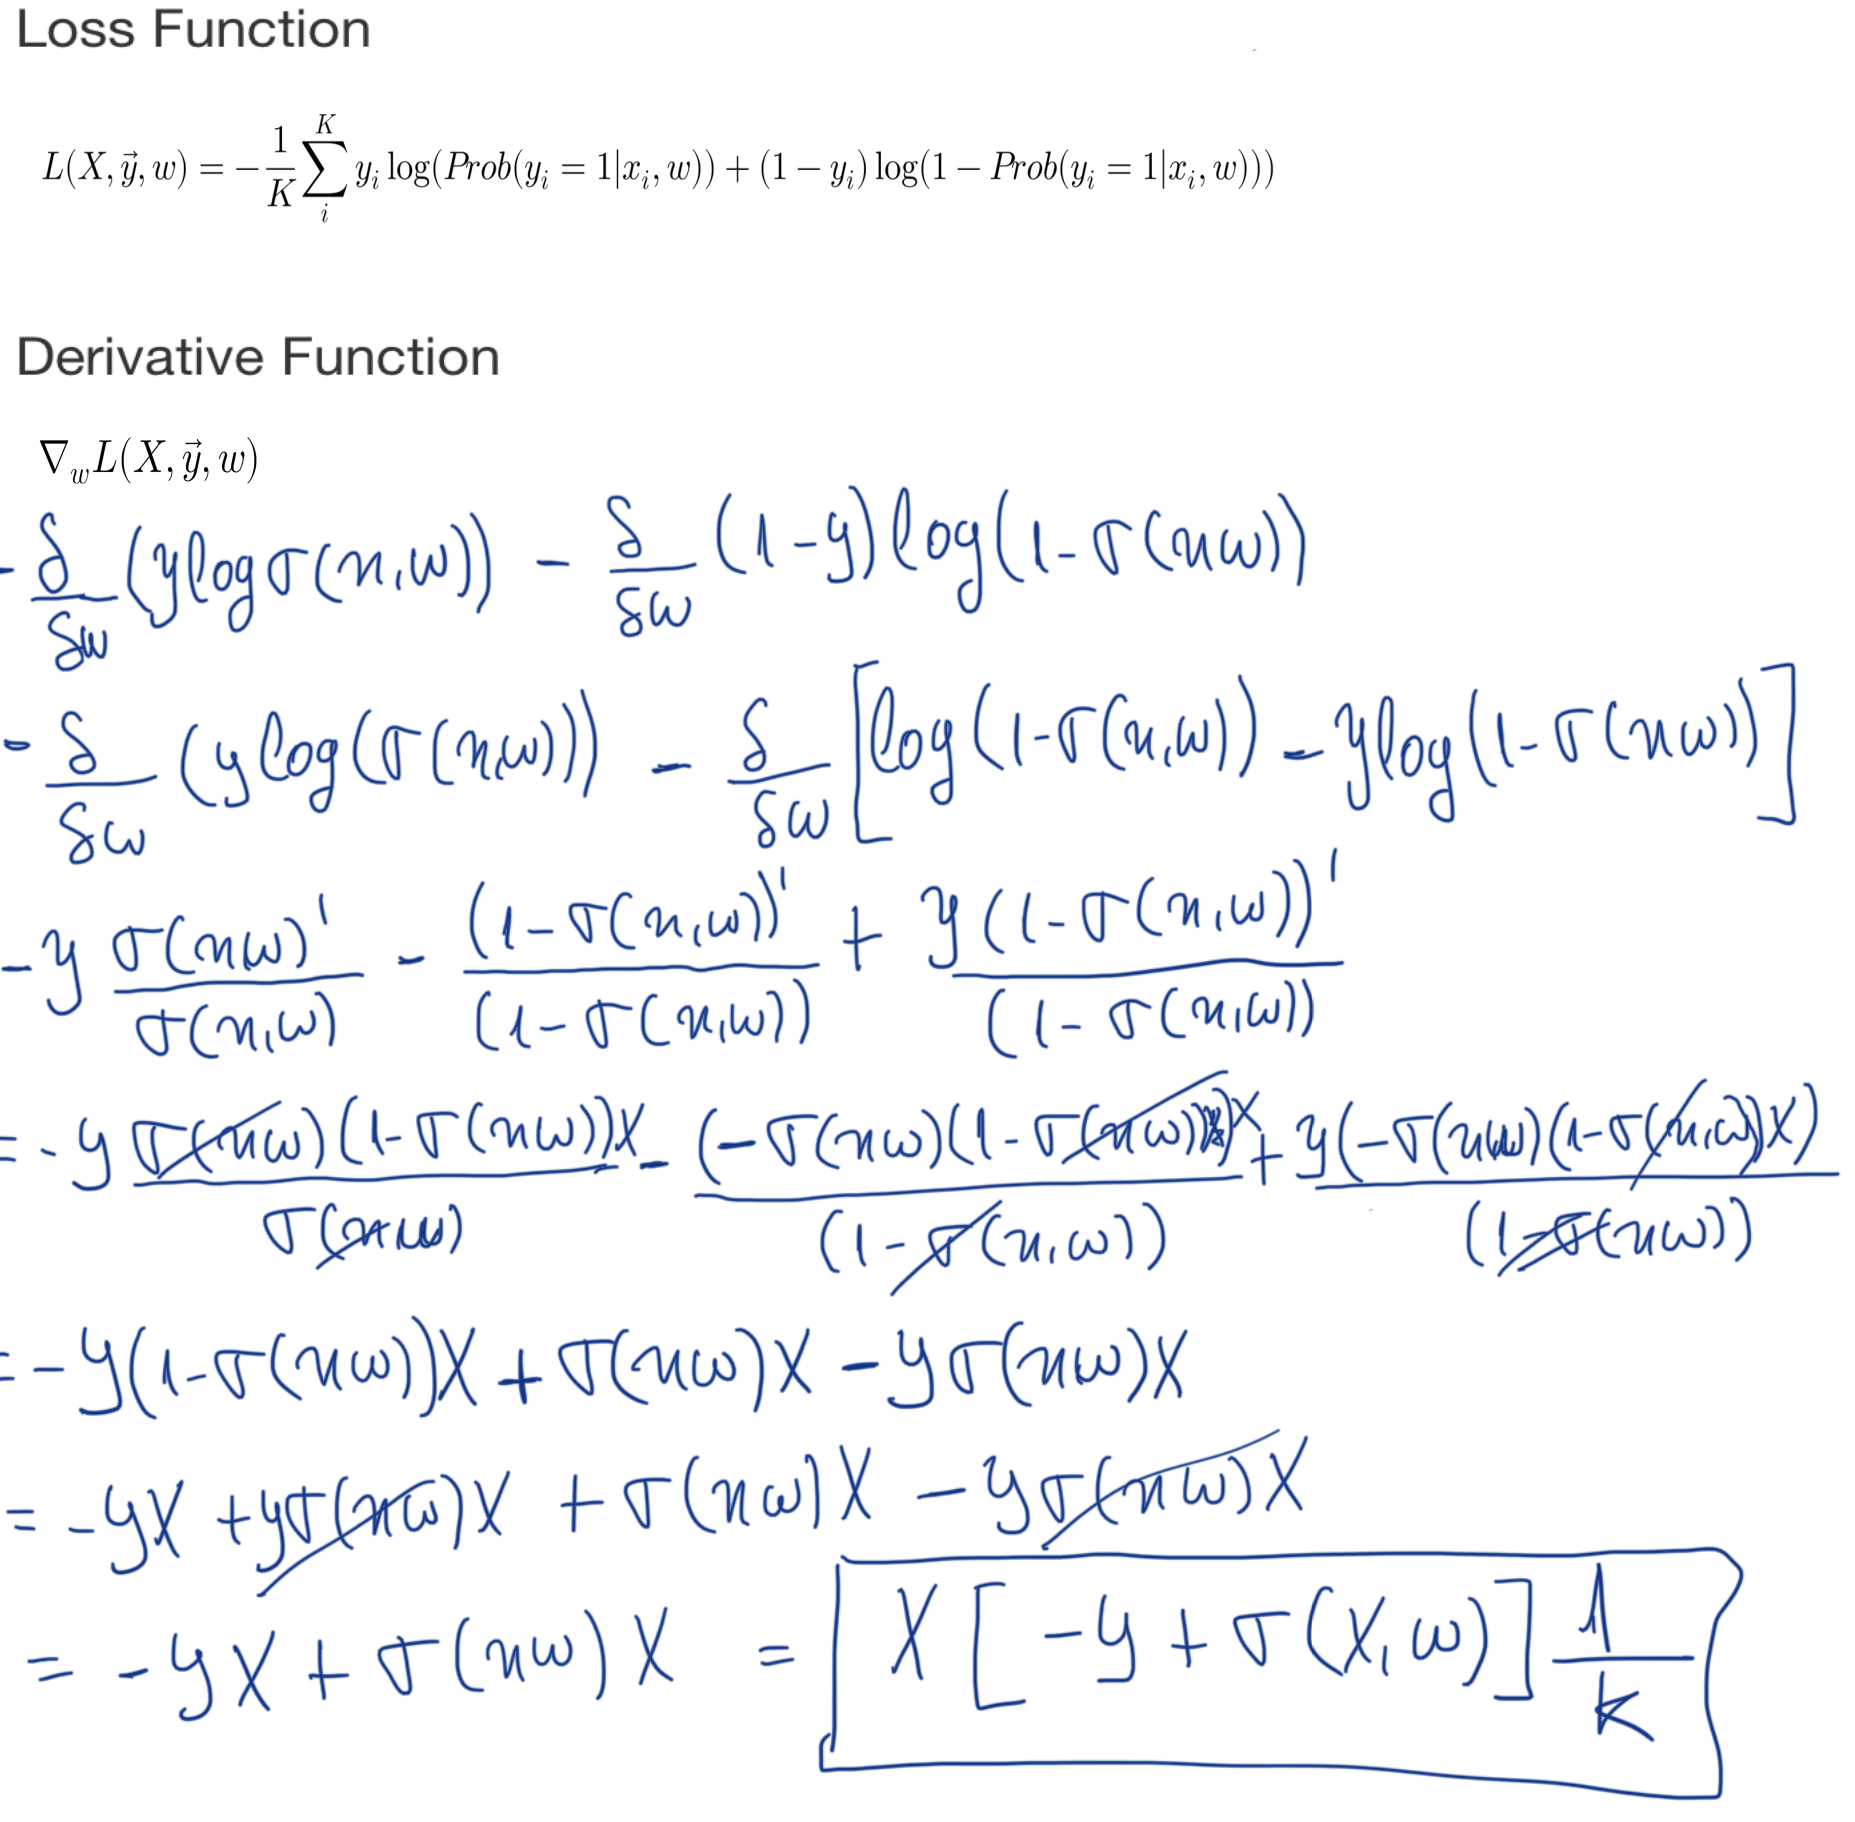 Loss Function
L(X, y⃗, w) = −1/K ∑_i^K y_i log(Prob(y_i = 1|x_i, w)) + (1 − y_i) log(1 − Prob(y_i = 1|x_i, w)))
Derivative Function
∇_w L(X, y⃗, w)
- δ/δw (y log σ(x,w)) - δ/δw (1-y) log(1-σ(xw))
- δ/δw (y log(σ(x,w))) - δ/δw [log(1-σ(x,w)) - y log(1-σ(xw))]
- y σ(xw)'/σ(x,w) - (1-σ(x,w))'/(1-σ(x,w)) + y(1-σ(x,w))'/(1-σ(x,w))
= - y σ(xw)(1-σ(xw))X/σ(xw) - (-σ(xw)(1-σ(xw)))X/(1-σ(x,w)) + y(-σ(xw)(1-σ(x,w))X)/(1-σ(xw))
= - y(1-σ(xw))X + σ(xw)X - yσ(xw)X
= - yX + yσ(xw)X + σ(xw)X - yσ(xw)X
= - yX + σ(xw)X = X[-y + σ(X,w)] 1/K